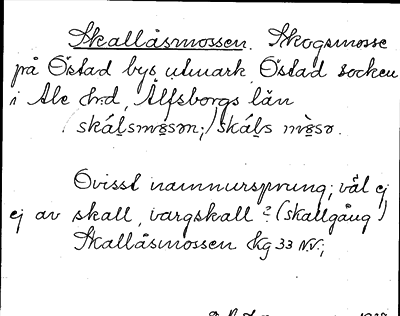 Skallåsmossen. Skogsmosse
på Östad bys utmark, Östad socken
i Ale hrd, Älfsborgs län
(skálsmo̱sən;) skáls mo̱sə.
Ovisst namnursprung; väl ej
ej av skall, vargskall? (skallgång)
Skallåsmossen Kg 33 N.V.;